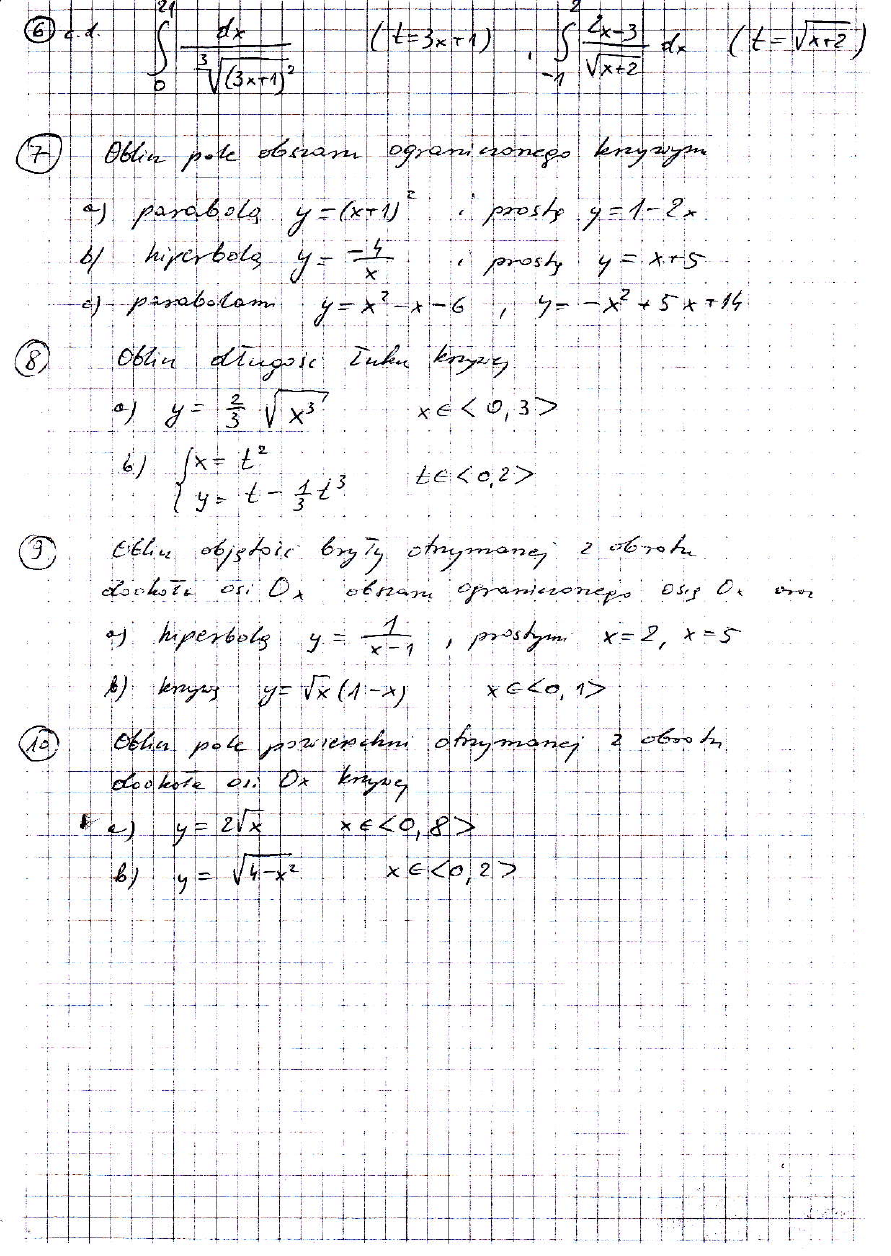 6 c.d. ∫₀²¹ dx / ∛(3x+1)² (t=3x+1) , ∫₋₁² (2x-3)/√(x+2) dx (t=√(x+2))
7 Oblicz pole obszaru ograniczonego krzywymi
a) parabolą y=(x+1)² i prostą y=1-2x
b) hiperbolą y= -4/x i prostą y=x+5
c) parabolami y=x²-x-6 , y=-x²+5x+14
8 Oblicz długość łuku krzywej
a) y= 2/3 √x³ x∈<0,3>
b) { x=t²
y= t - 1/3 t³ t∈<0,2>
9 Oblicz objętość bryły otrzymanej z obrotu
dookoła osi Ox obszaru ograniczonego osią Ox oraz
a) hiperbolą y= 1/(x-1) , prostymi x=2, x=5
b) krzywą y=√x(1-x) x∈<0,1>
10 Oblicz pole powierzchni otrzymanej z obrotu
dookoła osi Ox krzywej
a) y=2√x x∈<0,8>
b) y= √(4-x²) x∈<0,2>